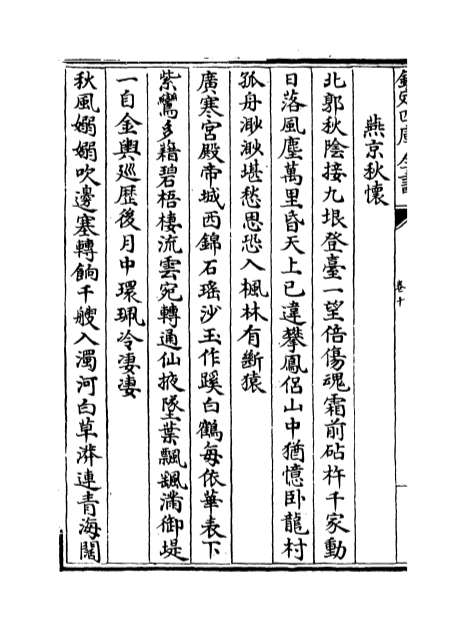 欽定四庫全書
卷十
燕京秋懷
北郭秋陰接九垠登臺一望倍傷魂霜前砧杵千家動
日落風塵萬里昏天上已違攀鳳侣山中猶憶卧龍村
孤舟渺渺堪愁思恐入楓林有斷猿
廣寒宫殿帝城西錦石瑤沙玉作蹊白鶴每依華表下
紫鸞多藉碧梧棲流雲宛轉通仙掖墜葉飄飄滿御堤
一自金輿廵歴後月中環珮冷凄凄
秋風嫋嫋吹邊塞轉餉千艘入濁河白草漭連青海闊